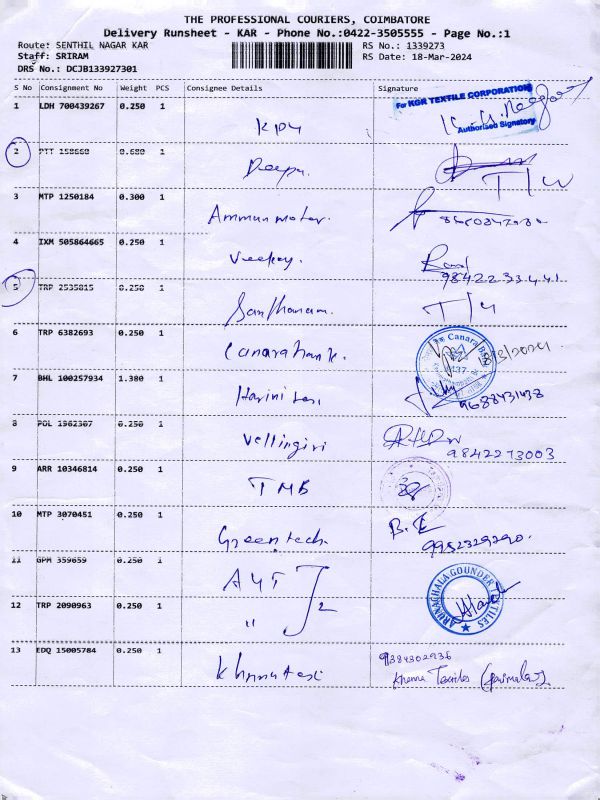 THE PROFESSIONAL COURIERS, COIMBATORE
Delivery Runsheet - KAR - Phone No.:0422-3505555 - Page No.:1
Route: SENTHIL NAGAR KAR RS No.: 1339273
Staff: SRIRAM RS Date: 18-Mar-2024
DRS No.: DCJB133927301
S No Consignment No Weight PCS Consignee Details Signature
1 LDH 700439267 0.250 1
For KGR TEXTILE CORPORATION
Authorised Signatory
KPY
2 PTT 158660 0.680 1
Deepu.
T/W
3 MTP 1250184 0.300 1
Ammun motor.
4 IXM 505864665 0.250 1
Veekay.
98422 33441
5 TRP 2535815 0.250 1
Santhanam.
T/4
6 TRP 6382693 0.250 1
Canara bank.
7 BHL 100257934 1.380 1
Harini tex
9688431438
8 POL 1962307 0.250 1
Vellingiri
9842273003
9 ARR 10346814 0.250 1
TMB
10 MTP 3070451 0.250 1
Greentech.
9952329290.
11 GPM 359659 0.250 1
AYT
ARUNACHALA GOUNDER TEXTILES
12 TRP 2090963 0.250 1
" 2
13 EDQ 15005784 0.250 1
Khannatex
9384302936
Khanna Textiles